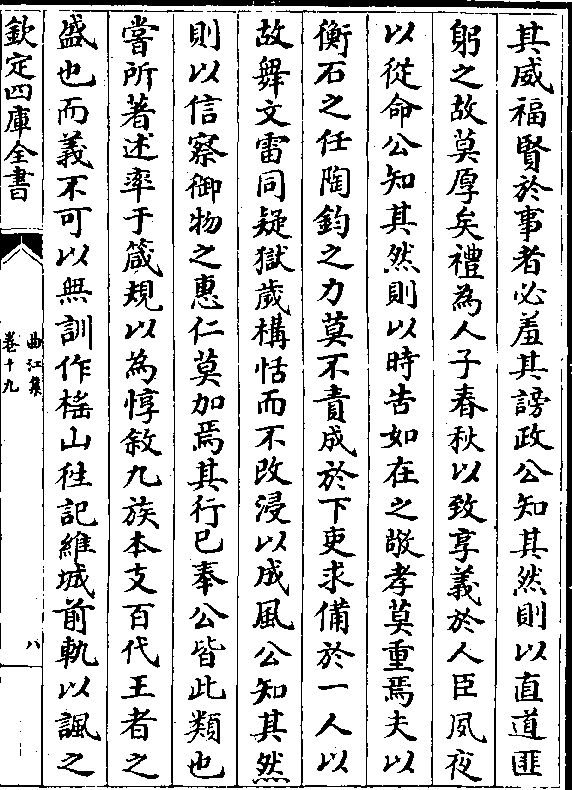 其威福賢於事者必羞其謗政公知其然則以直道匪
躬之故莫厚矣禮為人子春秋以致享義於人臣夙夜
以從命公知其然則以時告如在之敬孝莫重焉夫以
衡石之任陶鈞之力莫不責成於下吏求備於一人以
故舞文雷同疑獄歲構恬而不改浸以成風公知其然
則以信察御物之惠仁莫加焉其行已奉公皆此類也
嘗所著述率于箴規以為惇敘九族本支百代王者之
盛也而義不可以無訓作榣山徃記維城前軌以諷之
欽定四庫全書
曲江集
卷十九
八